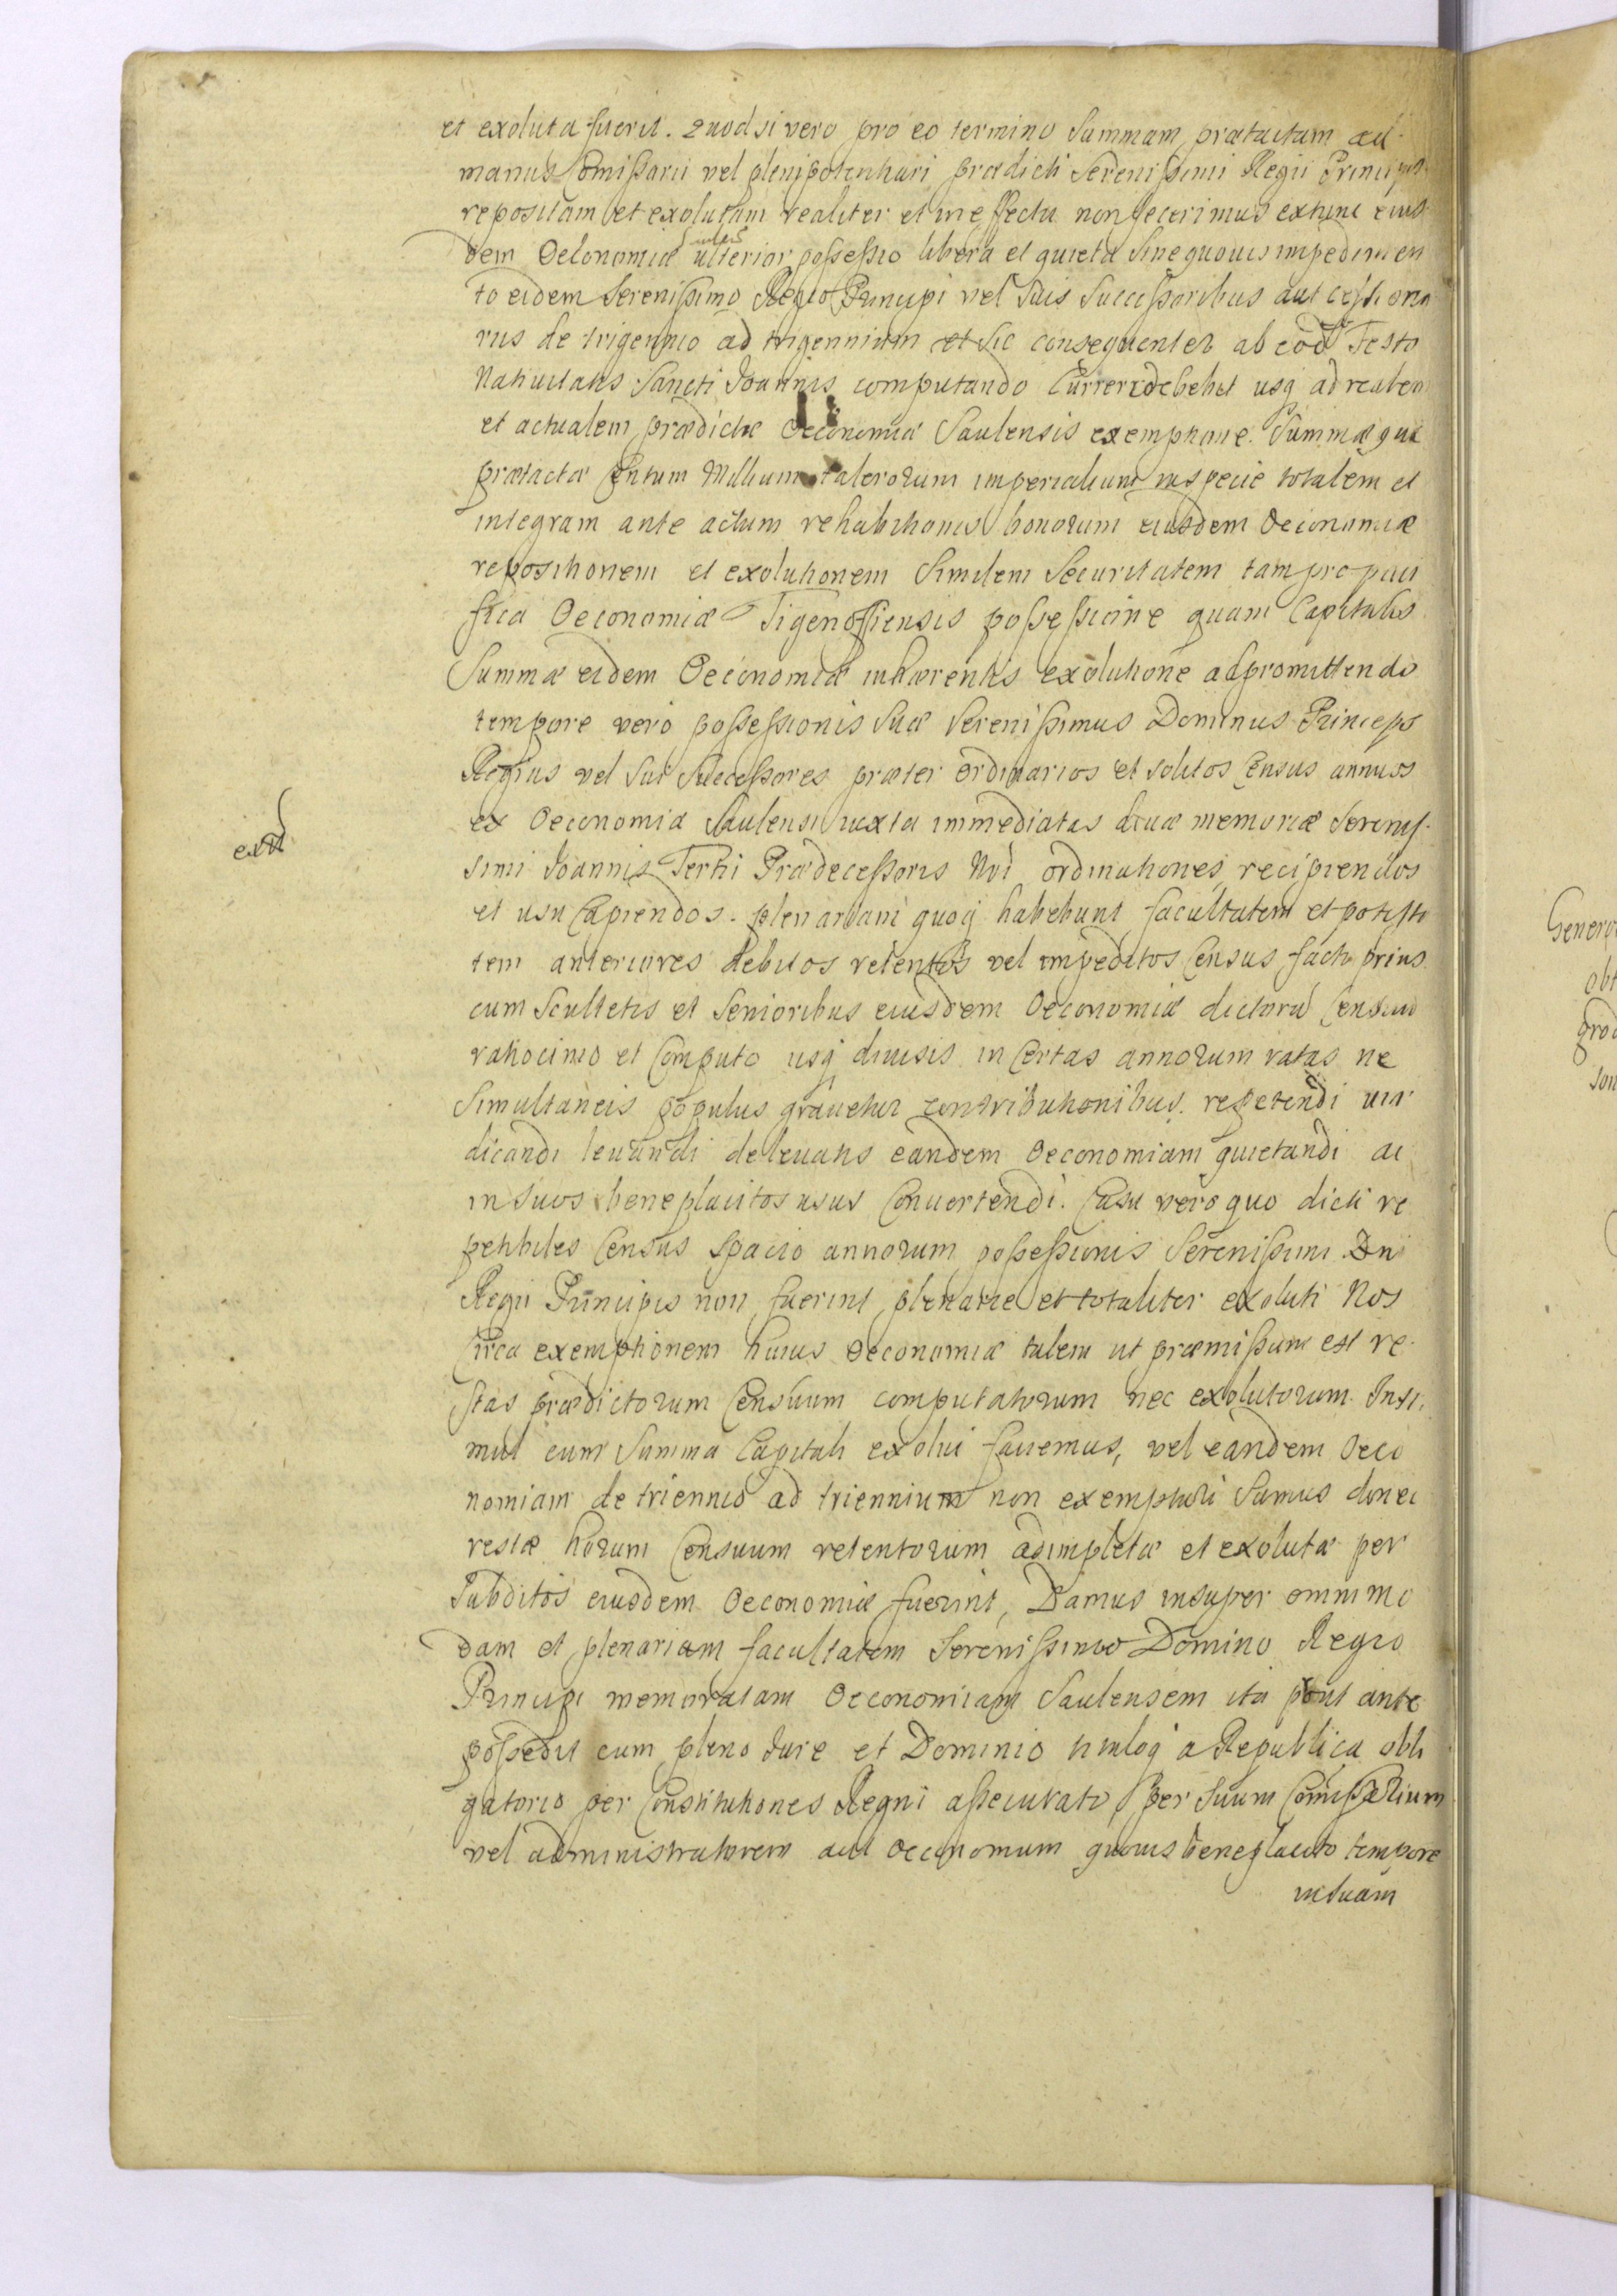 et exoluta fuerit. Quodsi vero pro eo termino Summam prætactam ad
manus Comißarii vel plenipotentiarii prædicti Serenißimi Regii Principis
repositam et exolutam realiter et in effectu non fecerimus extunc eius
dem Oeconomiæ ulterior poßeßio libera et quieta Sine quovis impedimen
to eidem Serenißimo Regio Principi vel Suis Succeßoribus aut ceßiona
riis de trigennio ad trigennium et Sic consequenter ab eod Festo
Nativitatis Sancti Joannis computando Currere debebit usq ad realem
et actualem prædictæ Oeconomiæ Saulensis exemptione. Summæ quæ
prætactæ Centum Millium talerorum imperialium in specie totalem et
integram ante actum rehabitionis bonorum eiusdem Oeconomiæ
repositionem et exolutionem Similem Securitatem tam pro paci
fica Oeconomiæ Tigenoffiensis poßeßione quam Capitalis
Summæ eidem Oeconomiæ inhærentis exolutione adpromittendo
tempore vero poßeßionis Suæ Serenißimus Dominus Princeps
Regius vel Sui Succeßores præter ordinarios et solitos Census annuos
ex Oeconomia Saulensi iuxta immediatas divæ memoriæ Serenis
simi Joannis Tertii Prædeceßoris Nri ordinationes recipiendos
et usu Capiendos. plenariam quoq habebunt facultatem et potesta
tem anteriores debitos retentos vel impeditos Census facto prius
cum Scultetis et Senioribus eiusdem Oeconomiæ dictorũ Censuum
ratiocinio et Computo usq divisis in Certas annorum ratas ne
Simultaneis populus gravetur contributionibus. repetendi vin
dicandi levandi de levatis eandem Oeconomiam quietandi ac
in Suos beneplacitos usus Convertendi. Casu vero quo dicti re
petibiles Census Spacio annorum poßeßionis Serenißimi Dni
Regii Principis non fuerint plenarie et totaliter exoluti Nos
Circa exemptionem huius Oeconomiæ talem ut præmißum est re
stas prædictorum Censuum computatorum nec exolutorum Insi
mul cum Summa Capitali exolui faciemus, vel eandem Oeco
nomiam de triennio ad triennium non exempturi Sumus donec
restæ horum Censuum retentorum adimpletæ et exolutæ per
Subditos eiusdem Oeconomiæ fuerint, Damus insuper omnimo
dam et plenariam facultatem Serenißimo Domino Regio
Principi memoratam Oeconomiam Saulensem ita prout ante
poßedit cum pleno Jure et Dominio a Republica obli
gatorio per Constitutiones Regni aßecurato, per Suum Comißarium
vel administratorem aut Oeconomum quovis beneplacito tempore
in Suam
extd
Genero
obt
prod